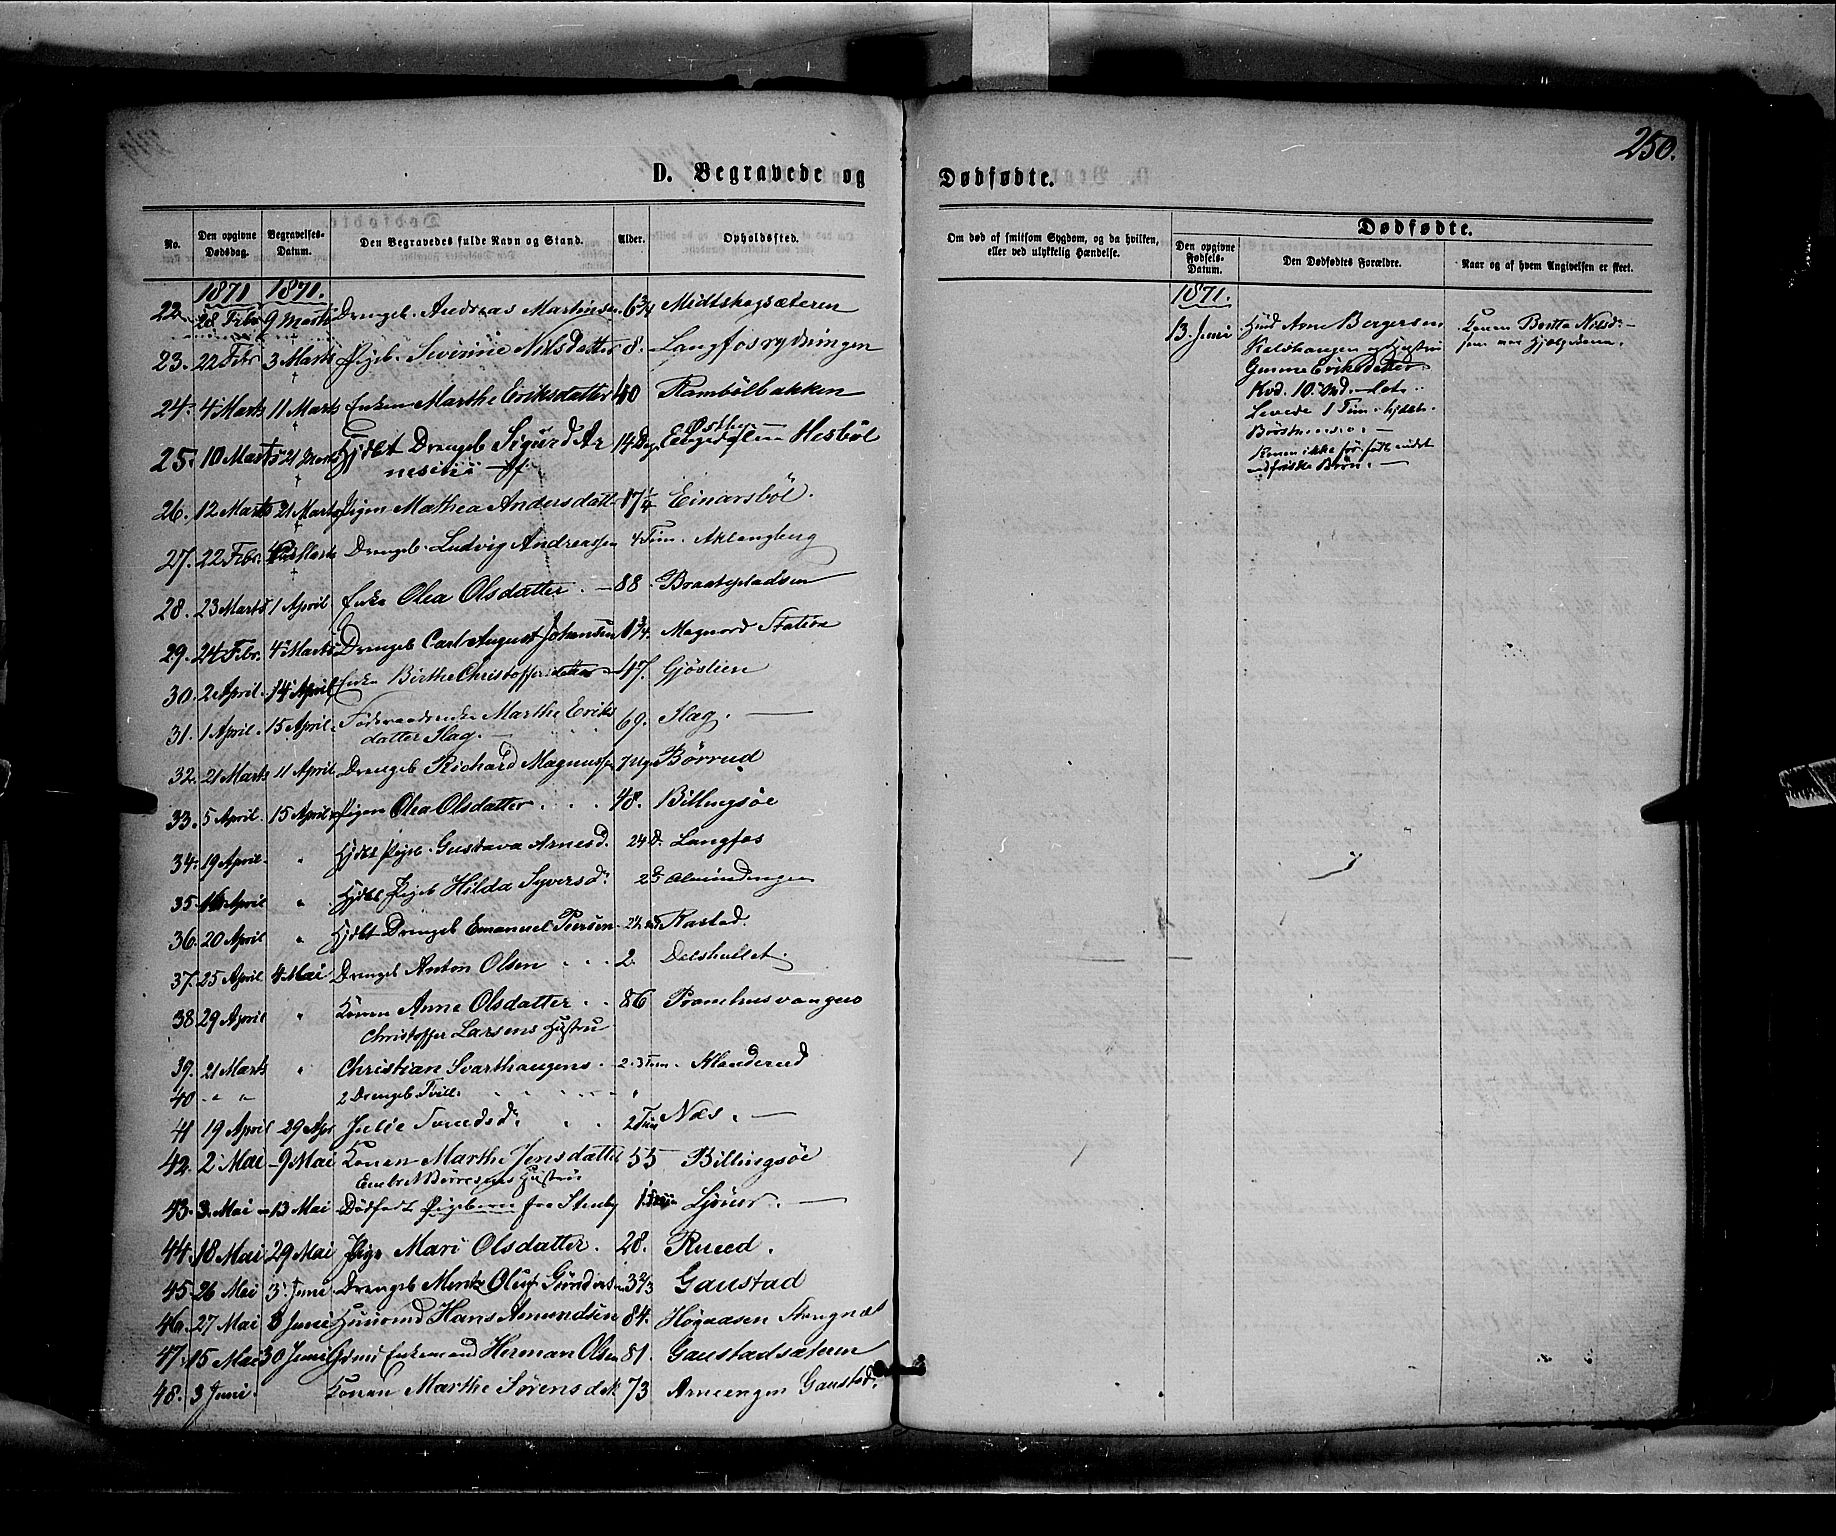 250.
D. Begravede og Dødfødte.
No. Den opgivne Dødsdag. Begravelses-Datum. Den Begravedes fulde Navn og Stand. Alder. Opholdssted.
1871 1871.
22. 28 Febr 9 Marts Drengeb. Andreas Martinsen 6 3/4 Midtskogsæteren
23. 22 Febr 3 Marts Pigeb. Severine Nilsdatter 8. Langfosrydningen
24. 4 Marts 11 Marts Enken Marthe Eriksdatter 40 Rambölbakken
25. 10 Marts 21 Marts Hjdbt Drengeb Sigurd Ar 14 Dge Hesböl
26. 12 Marts 21 Marts Pigen Mathea Andersdatt 17 1/4 Einarsböl.
27. 22 Febr. Marts Drengeb. Ludvig Andreassen 4 Tim. Aklangberg
28. 23 Marts 1 April Enke Olea Olsdatter. 88. Braatepladsen
29. 24 Febr. 4 Marts Drengeb Carl August Johansen 1 3/4. Magnord Station
30. 2 April. 14 April Enke Birthe Christoffersdatter 47. Gjöslien
31. 1 April. 15 April. Föderaadsenke Marthe Eriks 69. Slag.
datter Slag.
32. 21 Marts 11 April Drengeb Richard Magnuss 7 Ug Börrud
33. 5 April. 15 April Pigen Olea Olsdatter 48. Billingsöe
34. 19 April. " Hjdbt Pigeb. Gustava Arnesd. 24 D. Langfos
35. April " Hjdbt Pigeb Hilda Syversd. Almindingen
36. 20 April " Hjdbt Drengeb Emanuel Peersen Rastad.
37. 25 April 4 Mai Drengeb Anton Olsen 2. Delshullet.
38 29 April " Konen Anne Olsdatter 86 Pramhusvangen
Christoffer Larsens Hustru
39. 21 Marts " Christian Svarthaugens 2. 3 Tim. Klanderud
40 " " 2 Drengeb Tvill. "
41 19 April 29 Apr Julie Trondsd. 2 Tim Næs.
42. 2 Mai 9 Mai Konen Marthe Jensdatter 55 Billingsöe
Embret Börresens Hustru
43. 3. Mai 13 Mai Dödfødt Pigebarn fra Stenby Ljöner.
44. 18 Mai 29 Mai Pige Mari Olsdatter. 28. Ruud.
45. 26 Mai 3 Juni Drengeb Oluf Gundersen 3 2/3 Gaustad
46. 27 Mai 3 Juni Huusmd Hans Amundsen 84. Högaasen Stangnæs
47. 15 Mai 30 Juni Enkemand Herman Olsen 81. Gaustadsæteren
48. 3 Juni. Konen Marthe Sörensdtr 73 Arneengen Gaustad.
Om død af smitsom Sygdom, og da hvilken, eller ved ulykkelig Hændelse.
Dødfødte.
Den opgivne Fødsels-Datum. Den Dødfødtes Forældre. Naar og af hvem Angivelsen er skeet.
1871.
13. Juni Hmd Arne Bergersen
Kalshaugen og Hustru
Gunne Eriksdatter
Kvd.
Levede 1 Tim. hjdbt.
Konen ikke før født
Konen Berthe Nilsd.
som var Hjelpekone.